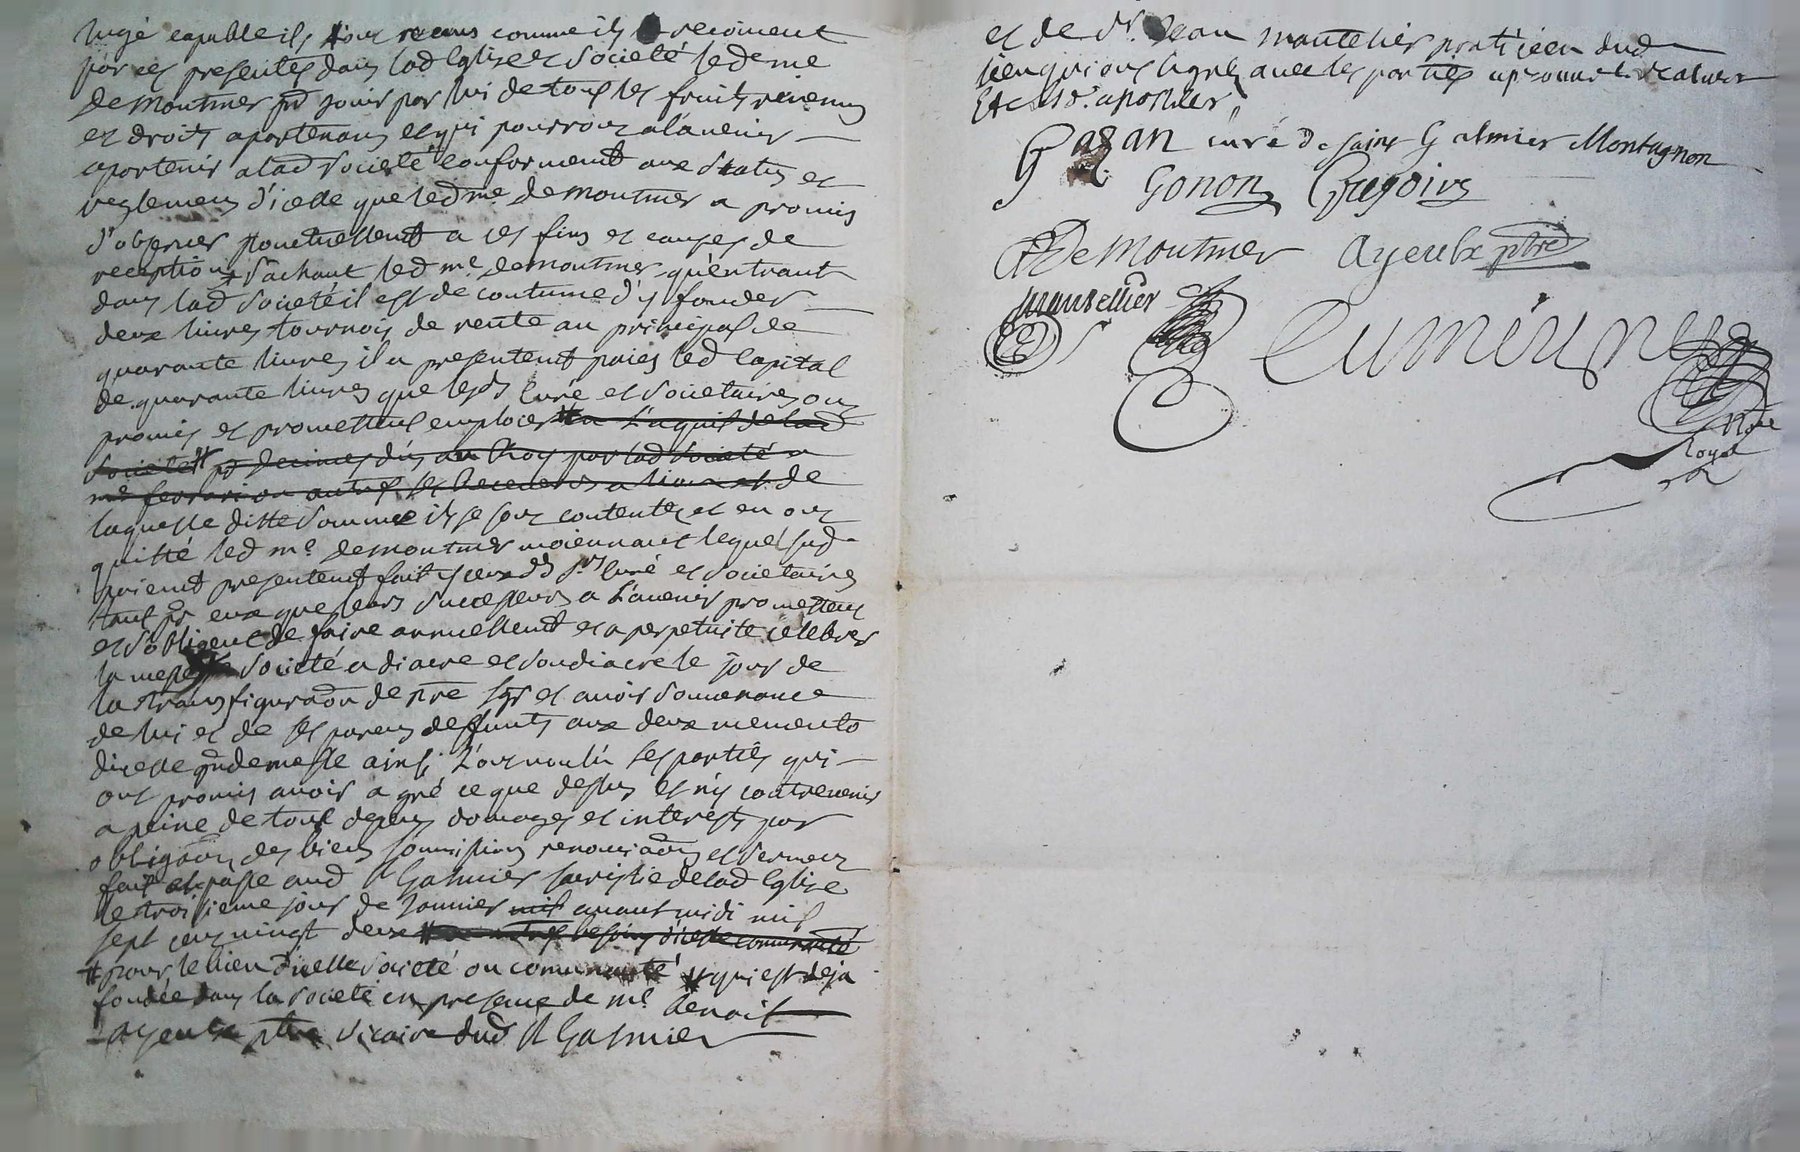 jugé capable ils l'ont receus comme ils recoivent
par ces presentes dans lad Eglise et Societé led me
de Montmer pr jouir par lui de tous les fruits revenus
et droits apartenans et qui pourront a l'avenir
apartenir a lad Societé conformemt aux Statuts et
reglemens d'icelle que led me de Montmer a promis
d'observer ponctuellemt a ces fins et causes de
reception sachant led me de montmer qu'entrant
dans lad Societé il est de coutume d'y fonder
deux livres tournois de rente au principal de
quarante livres il a presentemt paié led Capital
de quarante livres que lesd Curé et Societaires ont
promis et promettent emploier # a l'aquit de lad
Societé # pr decimes dus au Roy par lad Societé a
me ou autres de
laquelle ditte somme ils se sont contentés et en ont
quitté led me demontmer moiennant lequel sud
paiemt presentemt fait iceux dd Srs Curé et Societaires
tant pr eux que leurs Successeurs a l'avenir promettent
et s'obligent de faire annuellemt et a perpetuité celebrer
la messe Societé a diacre et soudiacre le jour de
la transfiguraon de nre Sgr et avoir souvenance
de lui et de ses parens deffunts aux deux memento
dicelle grdemesse ainsi l'ont voulu les parties qui
ont promis avoir a gré ce que dessus et n'y contrevenir
a peine de tous depens domages et interests par
obligaon des biens soumissions renonciaons et serment
fait et passé aud St Galmier sacristie de lad Eglise
le troisieme jour de Janvier mil avant midi mil
sept cens vingt deux # besoins d'icelle communauté
# pour le bien d'icelle societé ou comunauté # qui est deja
fondée dans la societé en presence de me Benoit
ayeulx ptre vicaire dud St Galmier
et de Sr. Jean mantelier praticien dud
lieu qui ont signés avec les parties
Gagan curé de saint Galmier Montagnon
Gonon Gregoire
De Montmer Ayeulx ptre
mantellier
Cumin
Nore
Royal